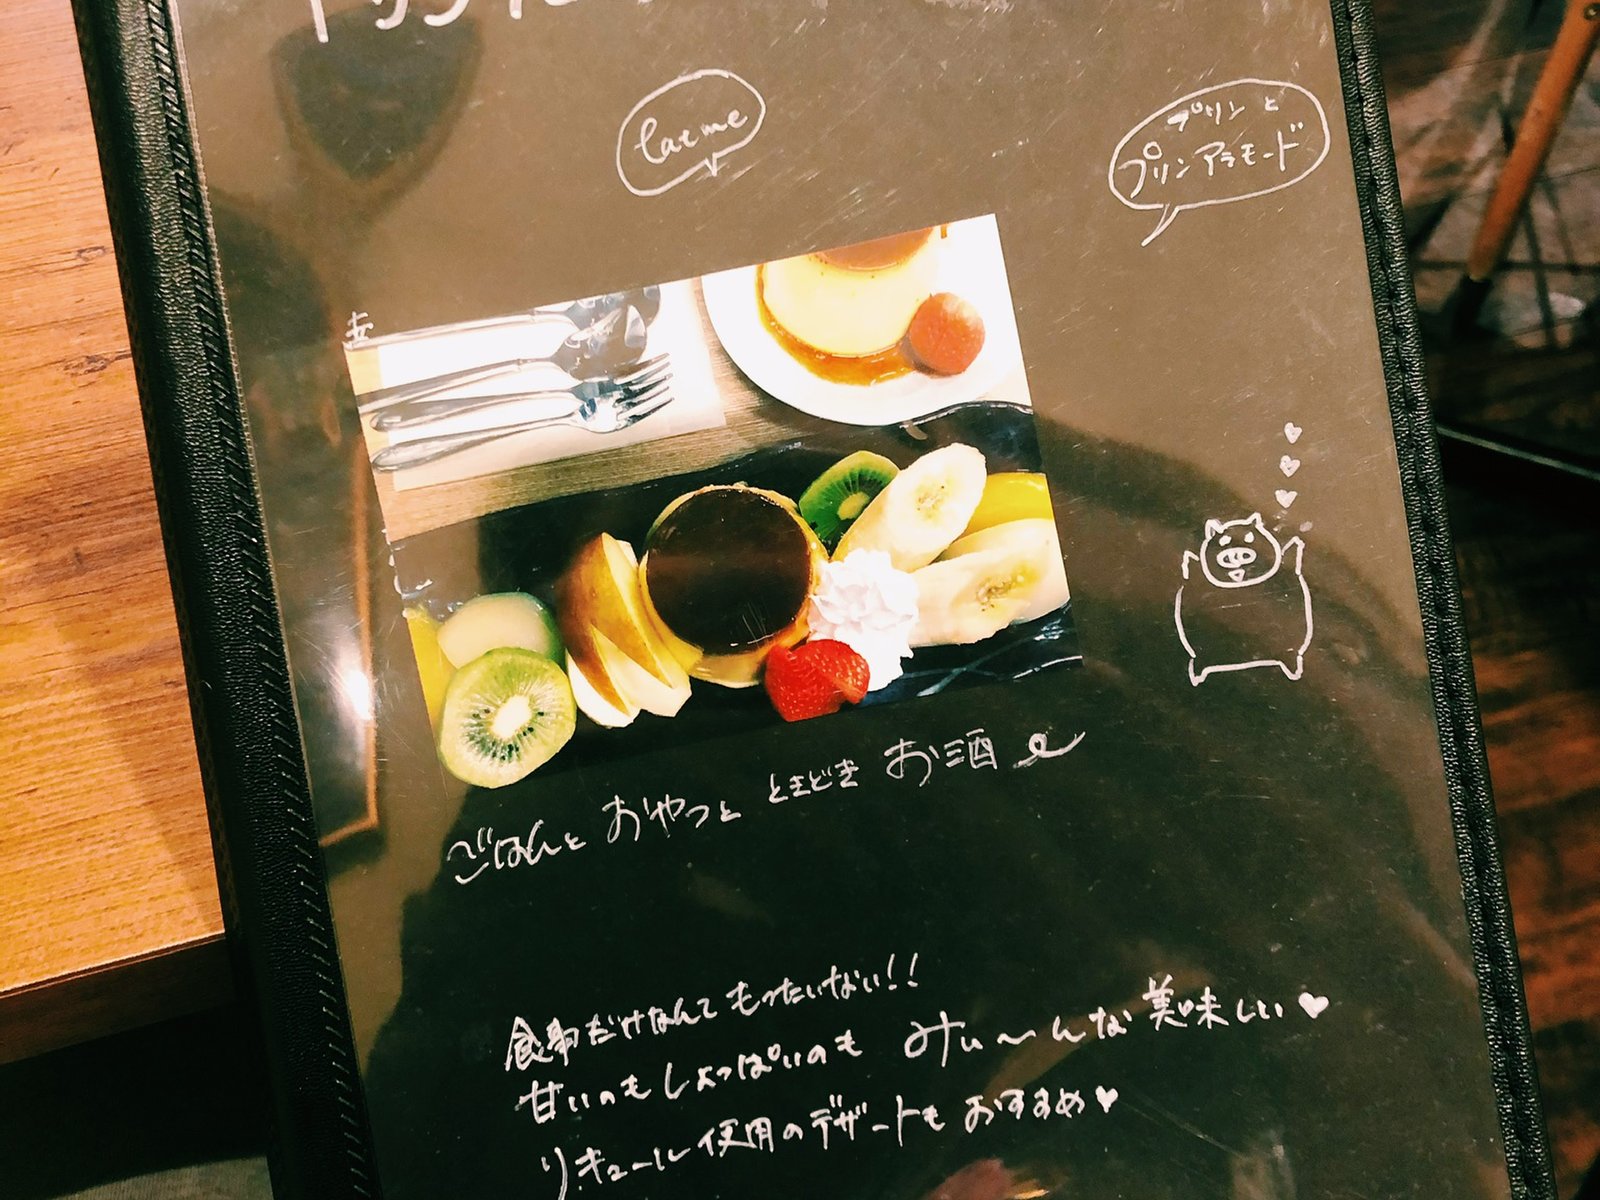 プリンと
プリンアラモード
ごはんと おやつと ときどき お酒
食事だけなんて もったいない!!
甘いのもしょっぱいのも みぃ〜んな 美味しい♥
リキュール使用のデザートも おすすめ♥